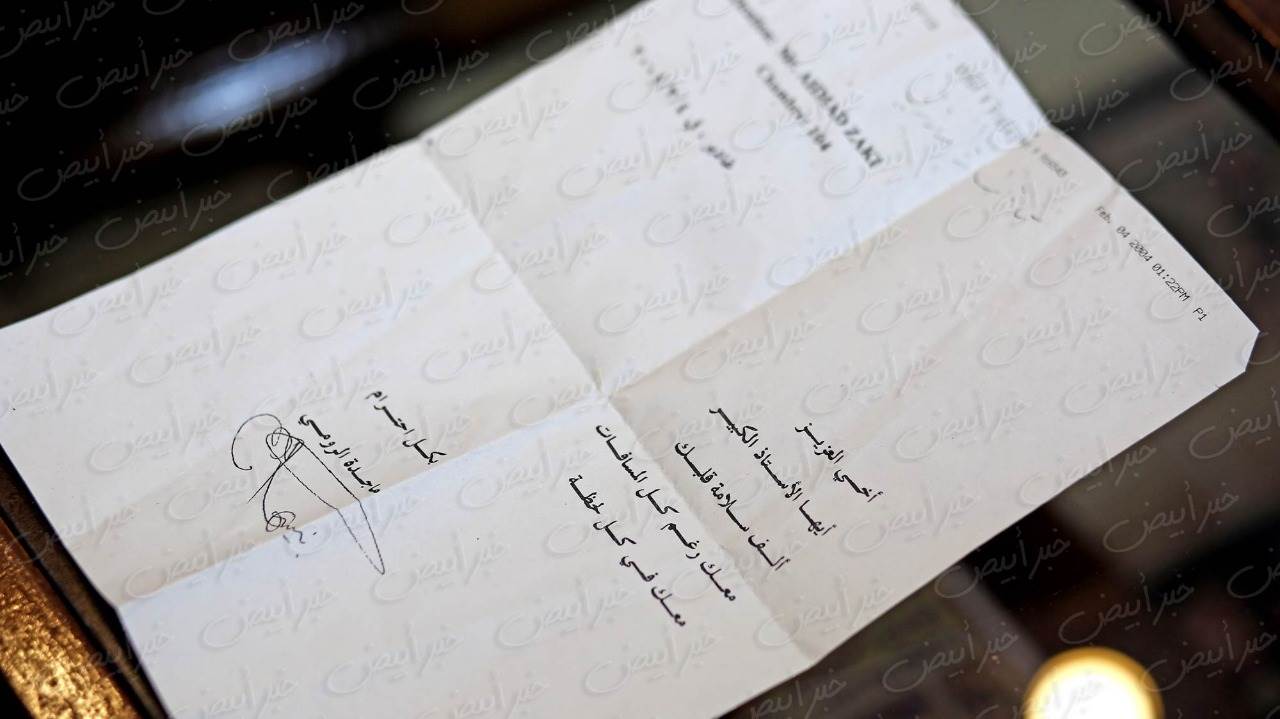 Feb. 04 2004 01:22PM P1
Mr. AHMAD ZAKI
Chambre: 104
أخي العزيز
أيها الأستاذ الكبير
ألف سلامة قلبك
معك رغم كل المسافات
معك في كل لحظة
بكل احترام
ماجدة الرومي
خبر أبيض